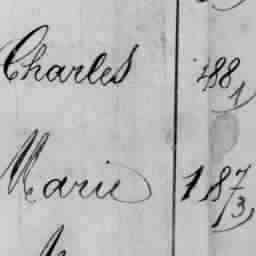 Charles 1881
Marie 1873